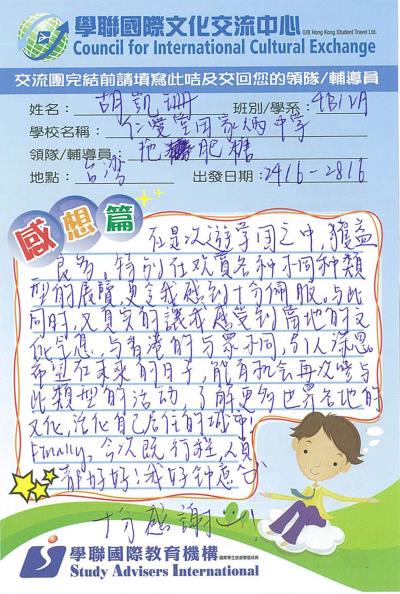 學聯國際文化交流中心
O/B Hong Kong Student Travel Ltd.
Council for International Cultural Exchange
交流團完結前請填寫此咭及交回您的領隊/輔導員
姓名: 胡凱珊 班別/學系: 4B/VA
學校名稱: 仁愛堂田家炳中學
領隊/輔導員: 肥糖
地點: 台灣 出發日期: 24/6-28/6
感想篇
在是次遊學團之中,獲益
良多,特別在欣賞各種不同種類
型的展覽,更令我感到十分佩服。與此
同時,又真實的讓我感受到當地的文
化思想,與香港的與眾不同,引人深思。
希望在未來的日子,能有機會再次參與
此類型的活動,了解更多世界各地的
文化,活化自己居住的城市!
Finally,今次既行程,人員
都好好!我好鍾意
十分感謝!
學聯國際教育機構
Study Advisers International